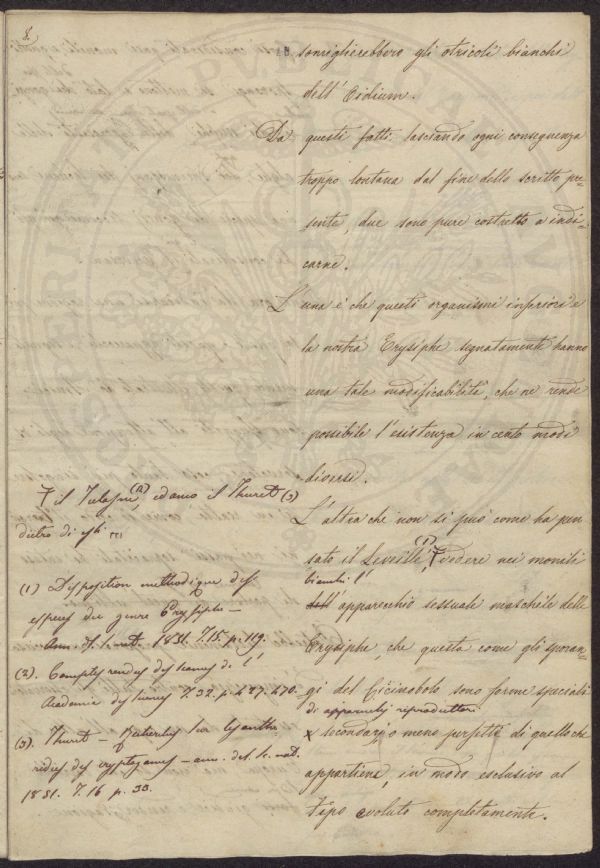 8.
somiglierebbero gli otricoli bianchi
dell' Oidium.
Da questi fatti lasciando ogni conseguenza
troppo lontana dal fine dello scritto pre=
sente, due sono pure costretto a indi=
carne.
L' una é che questi organismi inferiori e
la nostra Erysiphe segnatamente hanno
una tale modificabilità, che ne rende
possibile l'esistenza in cento modi
diversi.
L'altra che non si può come ha pen
sato il Leveillè (1), vedere nei monili
bianchi l'
dell' apparecchio sessuale maschile delle
Erysiphe, che questa come gli sporan=
gi del Cicinobolo sono forme speciali
di apparecchi riproduttori
x secondarj o meno perfetti di quello che
appartiene, in modo esclusivo al
tipo evoluto completamente.
il Tulasne (2), ed anco il Thuret (3)
dietro di essi
(1) Disposition methodique des
especes du genre Erysiphe —
Ann. des Sc. nat. 1851. T.15. p. 119.
(2). Comptes rendus des seances de l'
Academie des sciences T.32. p. 427. 470.
(3). Thuret — Recherches sur les anthe
ridies des cryptogames — ann. des Sc. nat.
1851. T.16 p. 33.